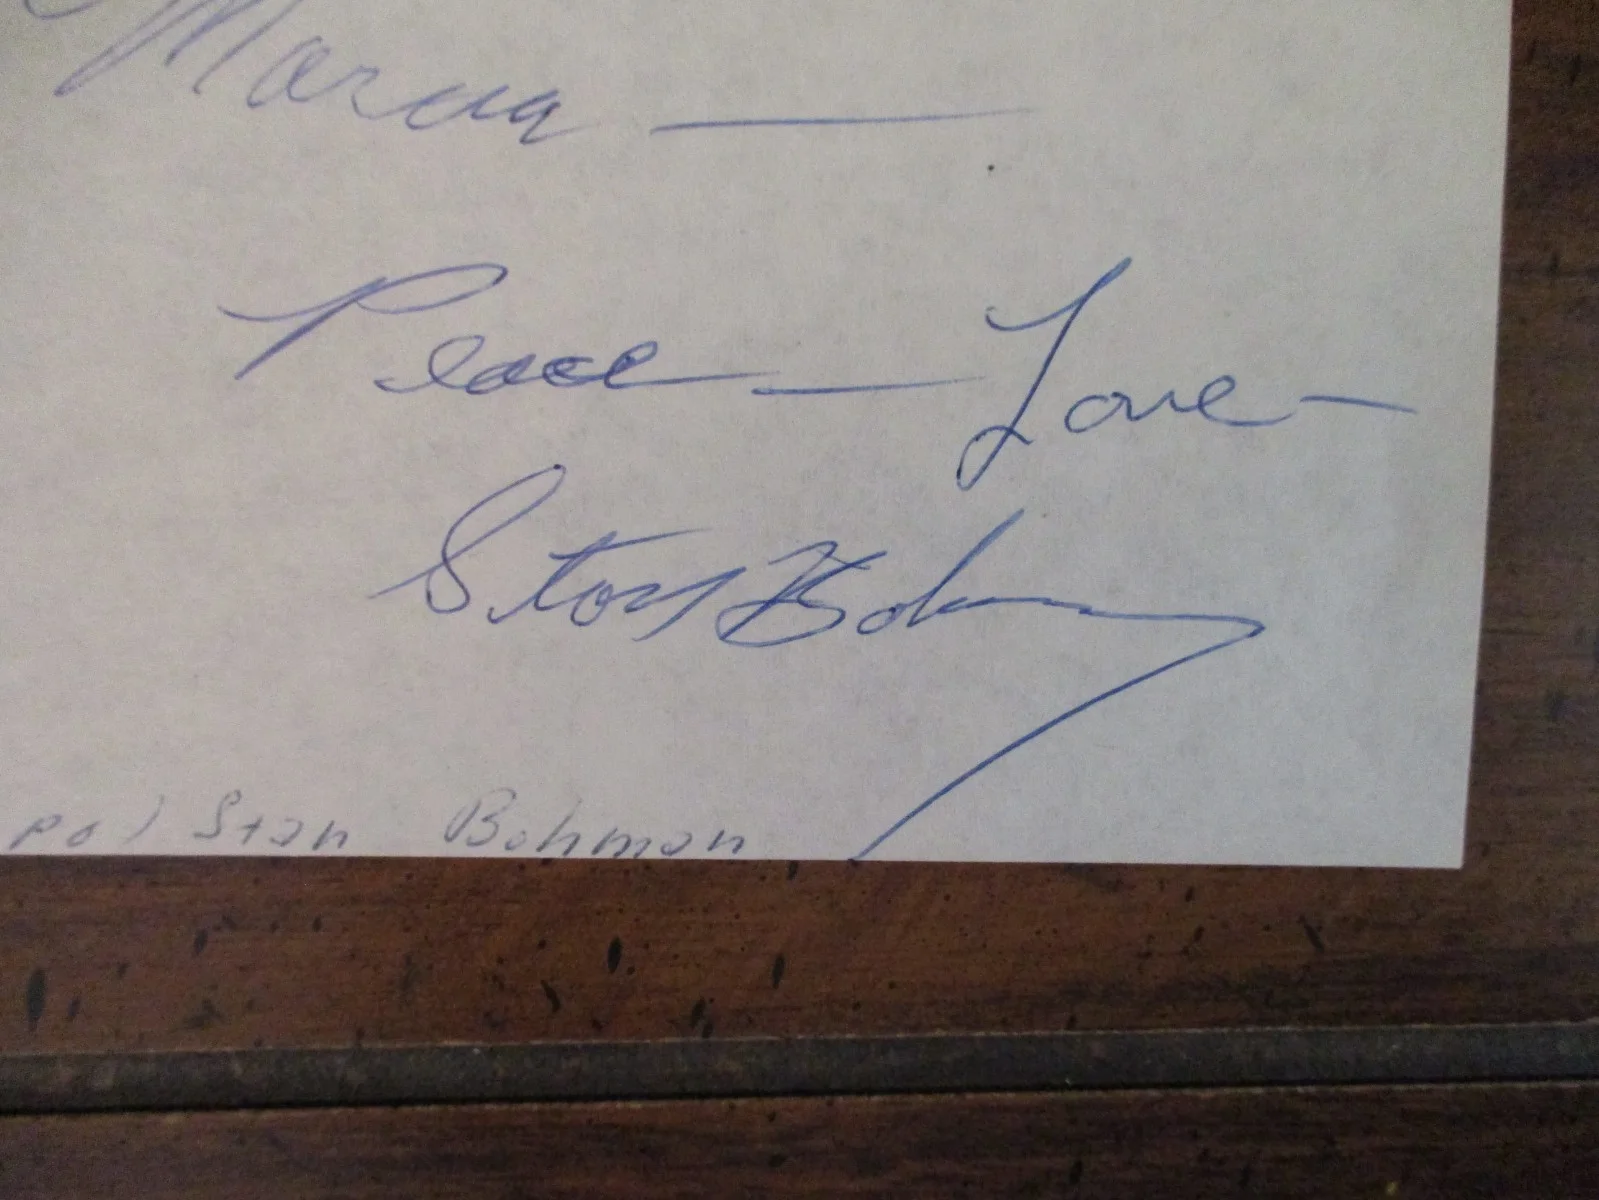 Marcia —
Peace — Love —
Stan Bohman
Stan Bohman